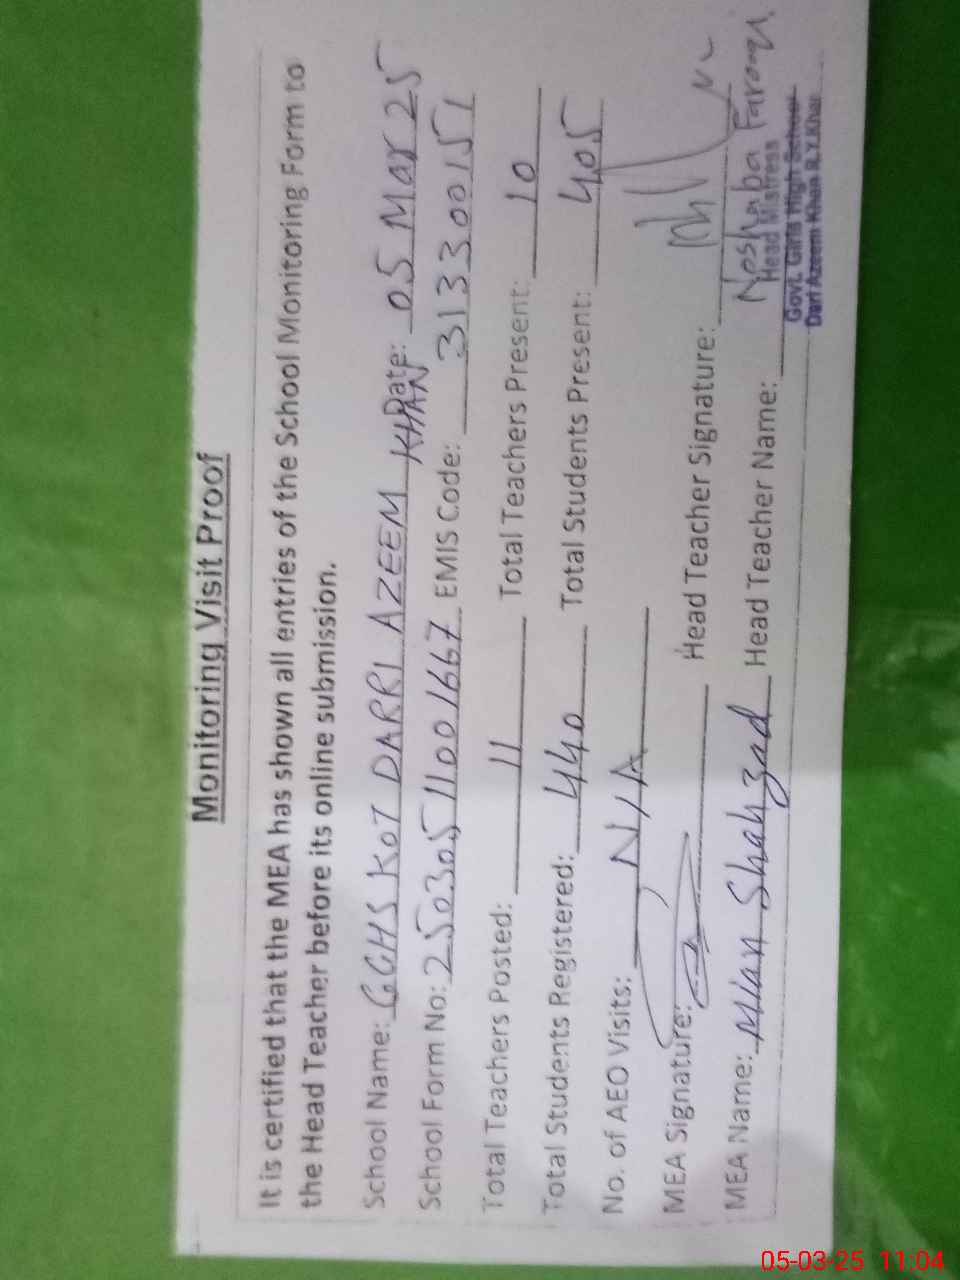 Monitoring Visit Proof
It is certified that the MEA has shown all entries of the School Monitoring Form to
the Head Teacher before its online submission.
School Name: GGHS KOT DARRI AZEEM KHAN Date: 05 Mar 25
School Form No: 25030511001667 EMIS Code: 31330015 1
Total Teachers Posted: 11 Total Teachers Present: 10
Total Students Registered: 440 Total Students Present: 405
No. of AEO Visits: N/A
MEA Signature: Head Teacher Signature:
MEA Name: Mian Shahzad Head Teacher Name: Noshaba Farooq
Head Mistress
Govt. Girls High School
Dari Azeem Khan R.Y.Khan
05-03-25 11:04